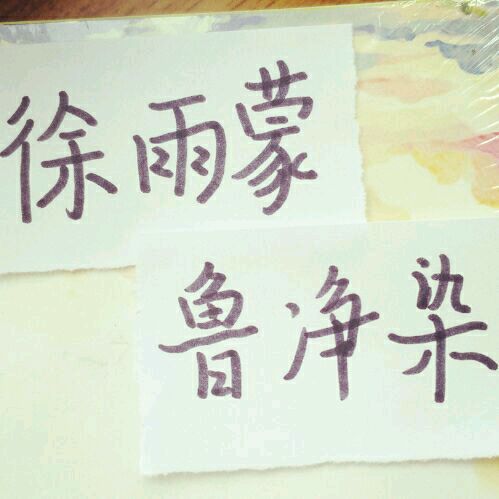 徐雨蒙
鲁净染